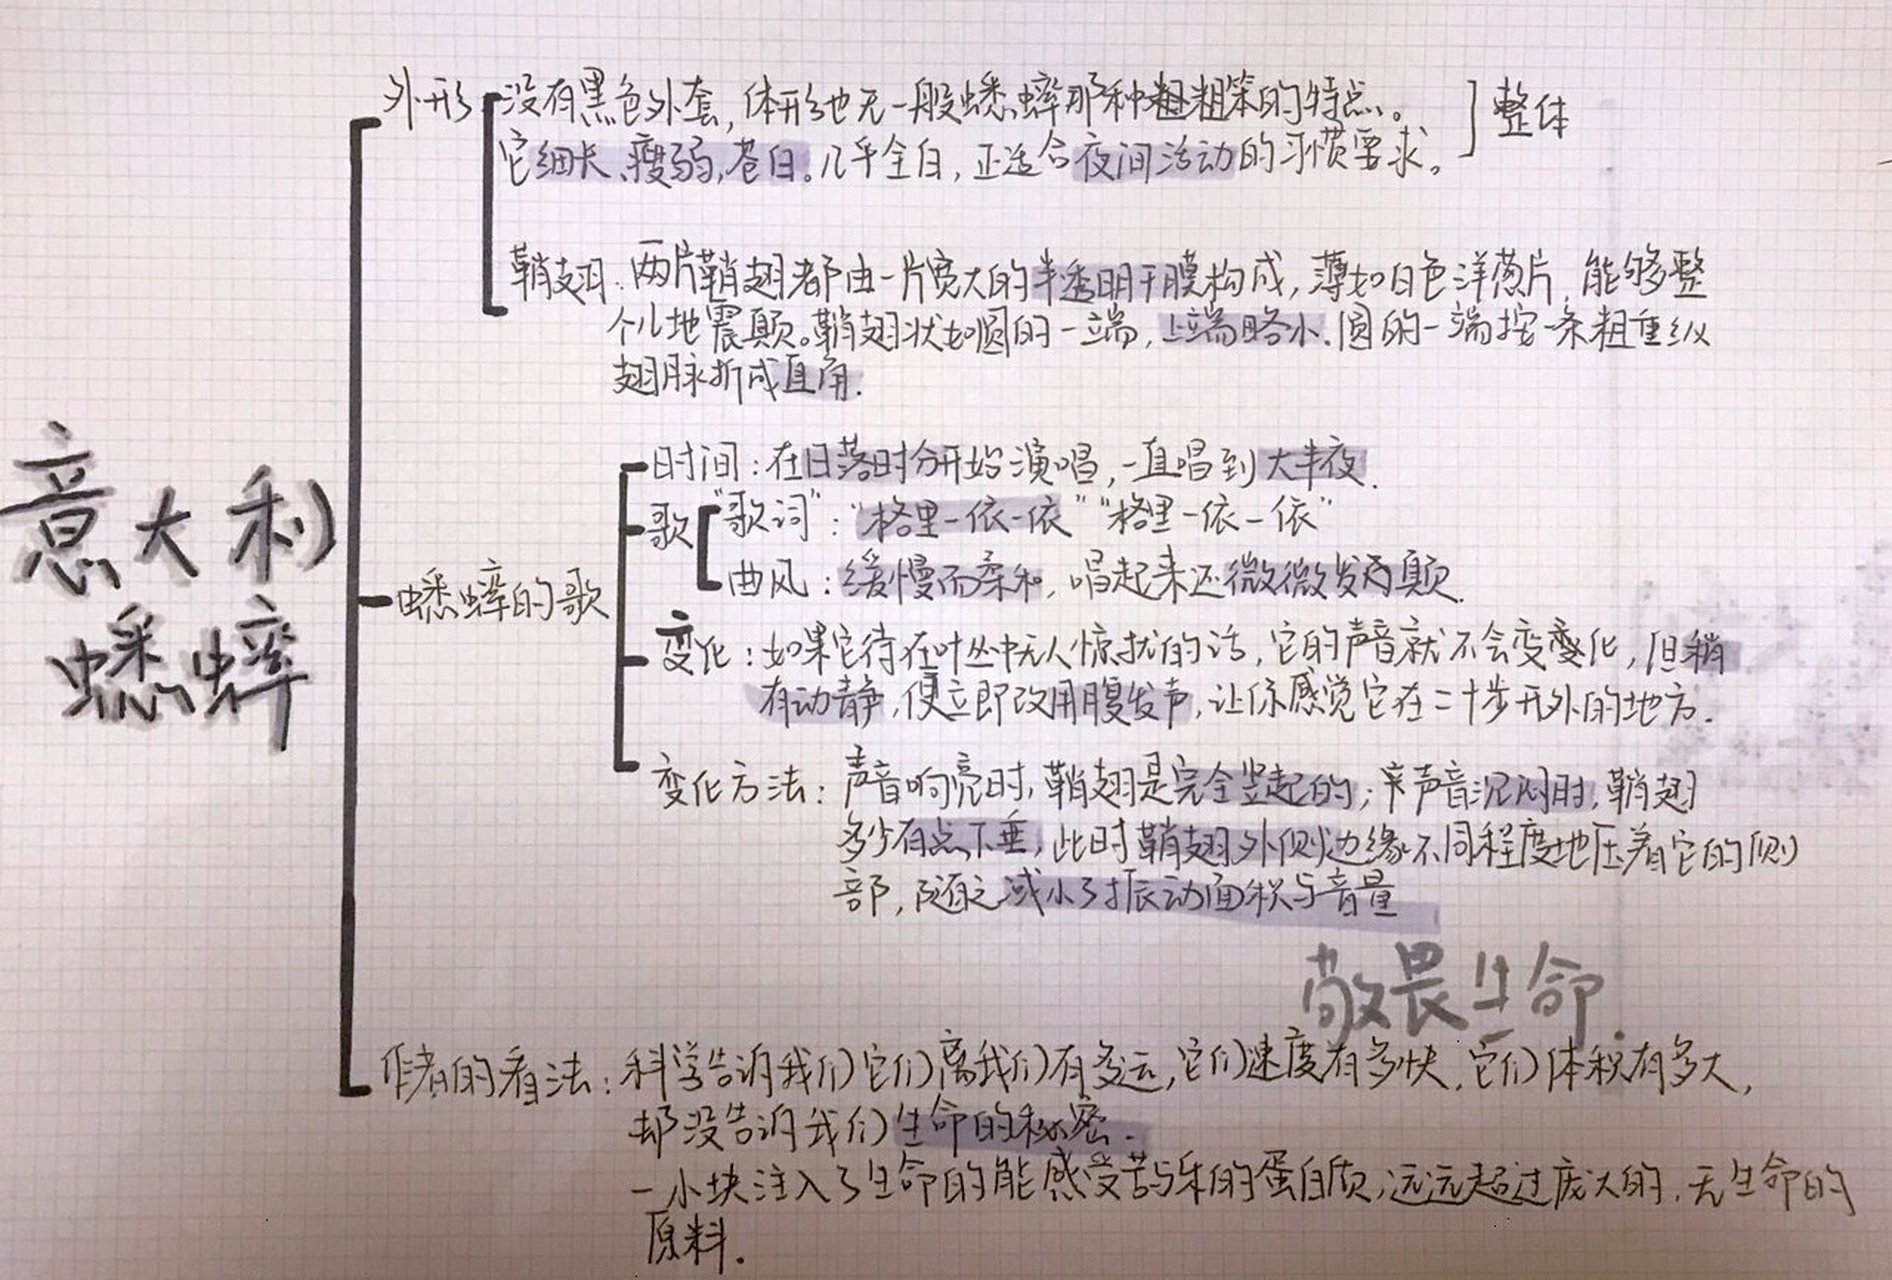 意大利
蟋蟀
外形
没有黑色外套,体形也无一般蟋蟀那种粗粗笨的特点。
它细长、瘦弱,苍白。几乎全白,正适合夜间活动的习惯要求。
整体
鞘翅:两片鞘翅都由一片宽大的半透明干膜构成,薄如白色洋葱片,能够整
个儿地震颤。鞘翅状如圆的一端,上端略小.圆的一端按一条粗重纵
翅脉折成直角.
蟋蟀的歌
时间:在日落时分开始演唱,一直唱到大半夜.
歌
"歌词":"格里-依-依""格里-依-依"
曲风:缓慢而柔和,唱起来还微微发颤.
变化:如果它待在叶丛中无人惊扰的话,它的声音就不会变变化,但稍
有动静,便立即改用腹发声,让你感觉它在二十步开外的地方.
变化方法:声音响亮时,鞘翅是完全竖起的;声音沉闷时,鞘翅
多少有点下垂,此时鞘翅外侧边缘不同程度地压着它的侧
部,随之减小了振动面积与音量
敬畏生命.
作者的看法:科学告诉我们它们离我们有多远,它们速度有多快,它们体积有多大,
却没告诉我们生命的秘密.
一小块注入了生命的能感受苦与乐的蛋白质,远远超过庞大的,无生命的
原料.